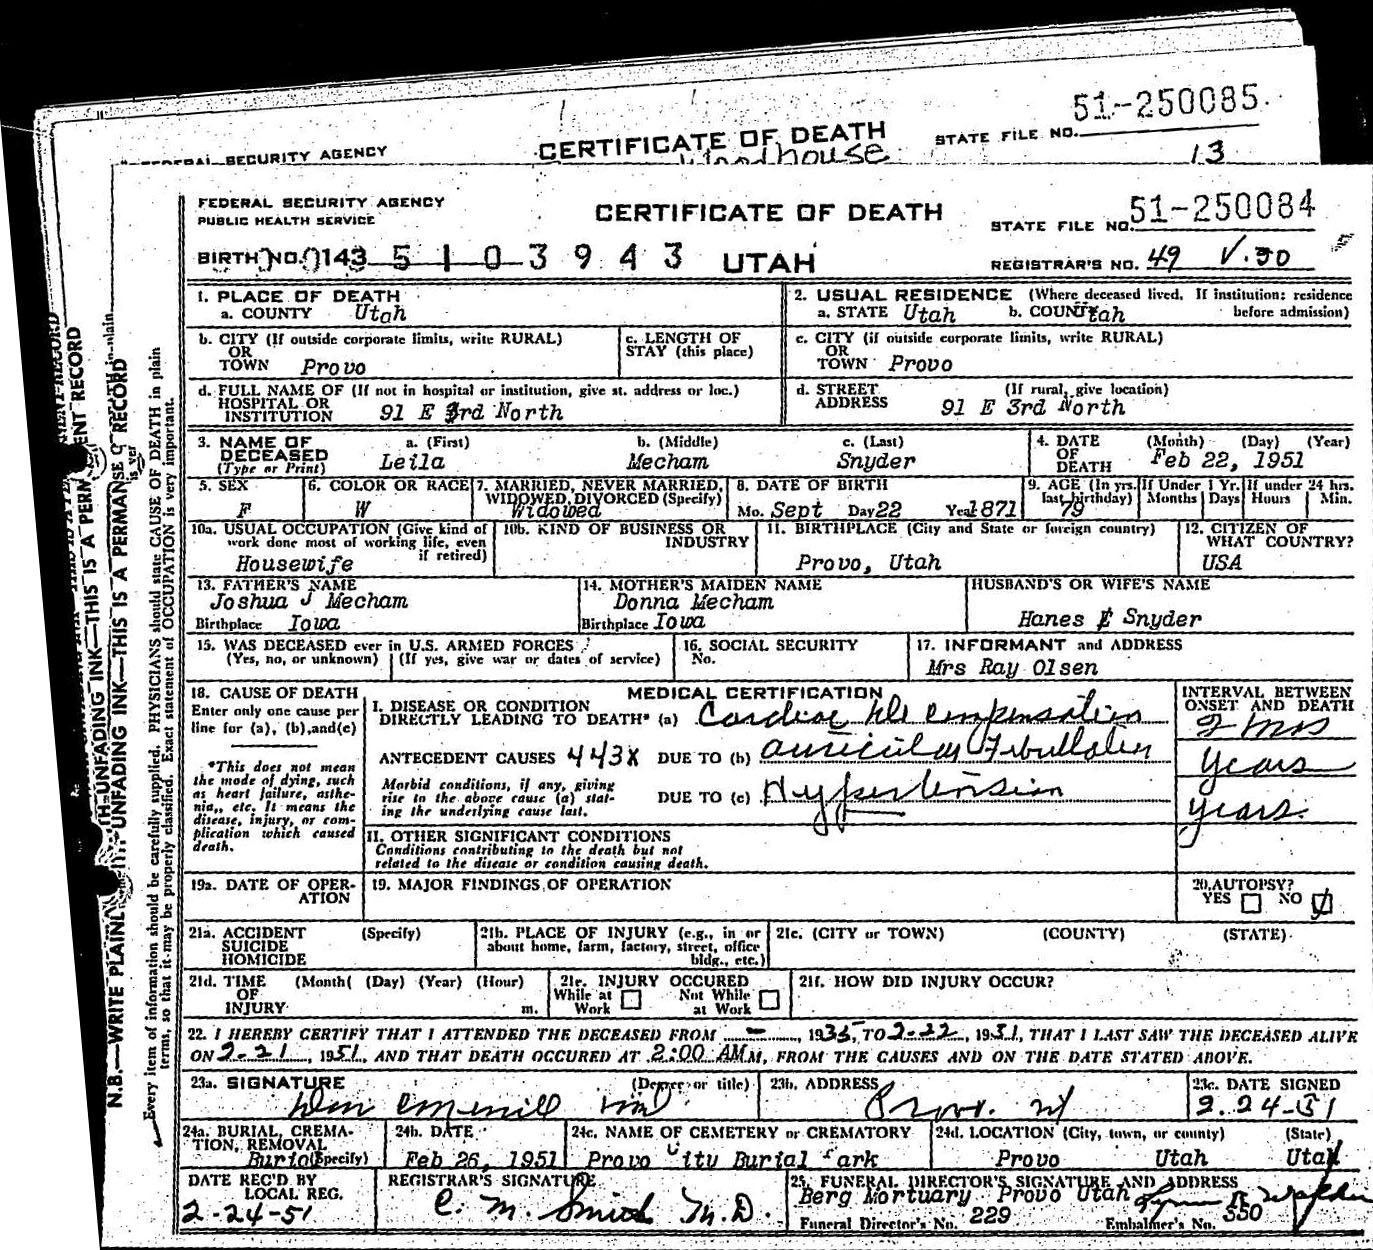 51-250085.
FEDERAL SECURITY AGENCY CERTIFICATE OF DEATH STATE FILE NO.
Woodhouse 13
FEDERAL SECURITY AGENCY
PUBLIC HEALTH SERVICE
CERTIFICATE OF DEATH
STATE FILE NO. 51-250084
BIRTH NO. 0143 5 1 0 3 9 4 3 UTAH REGISTRAR'S NO. 49 V.30
1. PLACE OF DEATH
a. COUNTY Utah
2. USUAL RESIDENCE (Where deceased lived. If institution: residence
a. STATE Utah b. COUNTY Utah before admission)
b. CITY (If outside corporate limits, write RURAL)
OR
TOWN Provo
c. LENGTH OF
STAY (this place)
c. CITY (if outside corporate limits, write RURAL)
OR
TOWN Provo
d. FULL NAME OF (If not in hospital or institution, give st. address or loc.)
HOSPITAL OR
INSTITUTION 91 E 3rd North
d. STREET (If rural, give location)
ADDRESS 91 E 3rd North
3. NAME OF a. (First) b. (Middle) c. (Last)
DECEASED
(Type or Print) Leila Mecham Snyder
4. DATE (Month) (Day) (Year)
OF
DEATH Feb 22, 1951
5. SEX
F
6. COLOR OR RACE
W
7. MARRIED, NEVER MARRIED,
WIDOWED, DIVORCED (Specify)
Widowed
8. DATE OF BIRTH
Mo. Sept Day 22 Year 1871
9. AGE (In yrs. If Under 1 Yr. If under 24 hrs.
last birthday) Months Days Hours Min.
79
10a. USUAL OCCUPATION (Give kind of
work done most of working life, even
if retired)
Housewife
10b. KIND OF BUSINESS OR
INDUSTRY
11. BIRTHPLACE (City and State or foreign country)
Provo, Utah
12. CITIZEN OF
WHAT COUNTRY?
USA
13. FATHER'S NAME
Joshua J Mecham
Birthplace Iowa
14. MOTHER'S MAIDEN NAME
Donna Mecham
Birthplace Iowa
HUSBAND'S OR WIFE'S NAME
Hanes E Snyder
15. WAS DECEASED ever in U.S. ARMED FORCES
(Yes, no, or unknown) (If yes, give war or dates of service)
16. SOCIAL SECURITY
No.
17. INFORMANT and ADDRESS
Mrs Ray Olsen
18. CAUSE OF DEATH
Enter only one cause per
line for (a), (b),and(c)
*This does not mean
the mode of dying, such
as heart failure, asthe-
nia,, etc. It means the
disease, injury, or com-
plication which caused
death.
MEDICAL CERTIFICATION
I. DISEASE OR CONDITION
DIRECTLY LEADING TO DEATH* (a) Cardiac decompensation
ANTECEDENT CAUSES 443X DUE TO (b) auricular Fibrillation
Morbid conditions, if any, giving
rise to the above cause (a) stat-
ing the underlying cause last.
DUE TO (c) Hypertension
II. OTHER SIGNIFICANT CONDITIONS
Conditions contributing to the death but not
related to the disease or condition causing death.
INTERVAL BETWEEN
ONSET AND DEATH
2 mos
years
years.
19a. DATE OF OPER-
ATION
19. MAJOR FINDINGS OF OPERATION
20. AUTOPSY?
YES NO
21a. ACCIDENT (Specify)
SUICIDE
HOMICIDE
21b. PLACE OF INJURY (e.g., in or
about home, farm, factory, street, office
bldg., etc.)
21c. (CITY or TOWN) (COUNTY) (STATE)
21d. TIME (Month( (Day) (Year) (Hour)
OF
INJURY m.
21e. INJURY OCCURED
While at Not While
Work at Work
21f. HOW DID INJURY OCCUR?
22. I HEREBY CERTIFY THAT I ATTENDED THE DECEASED FROM - , 1935, TO 2-22, 1951, THAT I LAST SAW THE DECEASED ALIVE
ON 2-21, 1951, AND THAT DEATH OCCURED AT 2:00 AM M, FROM THE CAUSES AND ON THE DATE STATED ABOVE.
23a. SIGNATURE (Degree or title)
23b. ADDRESS
Provo
23c. DATE SIGNED
2-24-51
24a. BURIAL, CREMA-
TION, REMOVAL
Burial (Specify)
24b. DATE
Feb 26, 1951
24c. NAME OF CEMETERY or CREMATORY
Provo City Burial Park
24d. LOCATION (City, town, or county) (State)
Provo Utah Utah
DATE REC'D BY
LOCAL REG.
2-24-51
REGISTRAR'S SIGNATURE
C. M. Smith M.D.
25. FUNERAL DIRECTOR'S SIGNATURE AND ADDRESS
Berg Mortuary Provo Utah
Funeral Director's No. 229 Embalmer's No. 550
N.B.—WRITE PLAINLY WITH UNFADING INK—THIS IS A PERMANENT RECORD
Every item of information should be carefully supplied. PHYSICIANS should state CAUSE OF DEATH in plain
terms, so that it may be properly classified. Exact statement of OCCUPATION is very important.